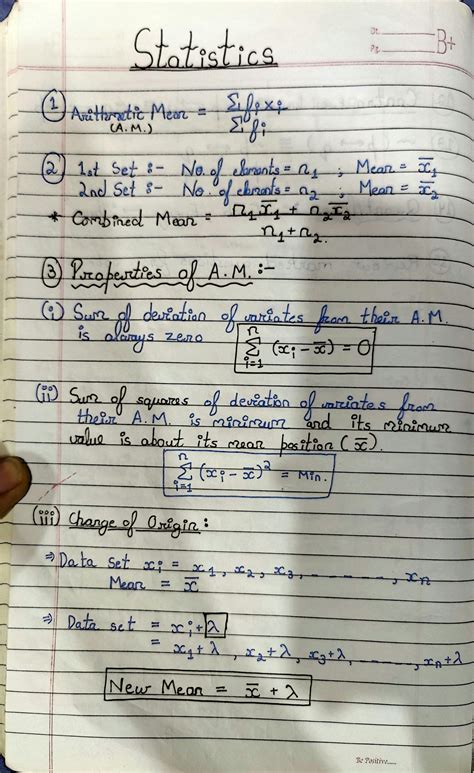 Statistics
B+
① Arithmetic Mean = Σfᵢxᵢ / Σfᵢ
(A.M.)
② 1st Set :- No. of elements = n₁ ; Mean = x̅₁
2nd Set :- No. of elements = n₂ ; Mean = x̅₂
* Combined Mean = n₁x̅₁ + n₂x̅₂ / n₁+n₂.
③ Properties of A.M. :-
(i) Sum of deviation of variates from their A.M.
is always zero
n Σ i=1 (xᵢ-x̅) = 0
(ii) Sum of squares of deviation of variates from
their A.M. is minimum and its minimum
value is about its mean position (x̅).
n Σ i=1 (xᵢ-x̅)² = Min.
(iii) Change of Origin :
⇒ Data Set xᵢ = x₁, x₂, x₃, -------, xₙ
Mean = x̅
⇒ Data set = xᵢ+λ
= x₁+λ, x₂+λ, x₃+λ, ------, xₙ+λ
New Mean = x̅ + λ
Be Positive.....